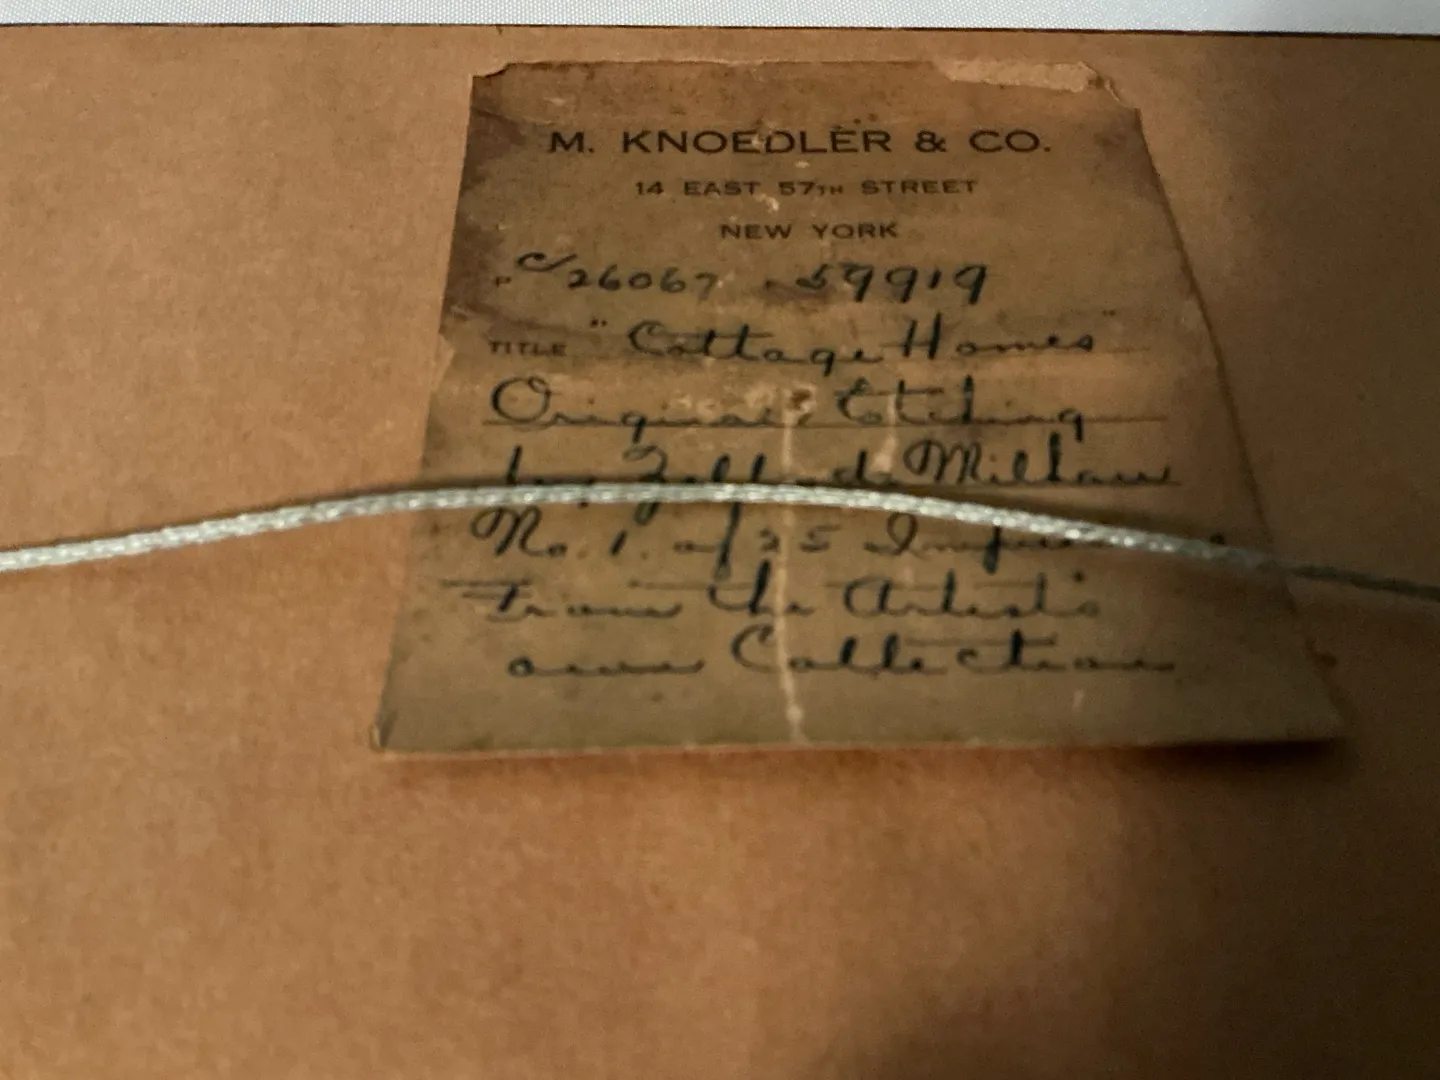 M. KNOEDLER & CO.
14 EAST 57TH STREET
NEW YORK
C/26067 59919
TITLE "Cottage Homes"
Original Etching
by de Milhau
No. 1. of 25
From the Artist's
own Collection